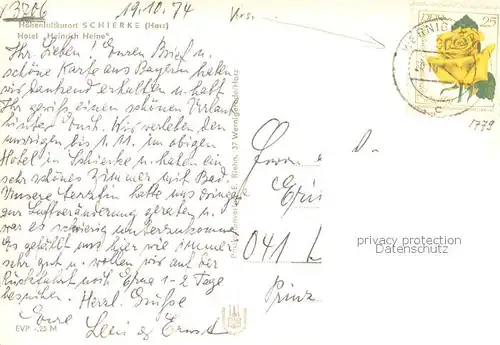 V 3206
19.10.74
Höhenluftkurort SCHIERKE (Harz)
Hotel „Heinrich Heine"
Ihr Lieben! Euren Brief u.
schöne Karte aus Bayern haben
wir dankend erhalten u. habt
Ihr gewiß einen schönen Urlaub
hinter Euch. Wir verleben den
unsrigen bis 1.11. im obigen
Hotel in Schierke u. haben ein
sehr schönes Zimmer mit Bad.
Unsere Ärztin hatte uns dringend
zur Luftveränderung geraten u.
war es schwierig unterzukommen.
Es gefällt uns hier wie immer
sehr gut u. wollen wir auf der
Rückfahrt noch Erna 1-2 Tage
besuchen. Herzl. Grüße
Eure Leni & Ernst
EVP -,25 M
Riehn, 37 Wernigerode/Harz
DDR 25
1779
041 L
Prinz
privacy protection
Datenschutz